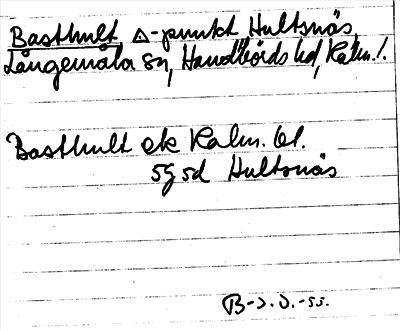 Basthult △-punkt Hultsnäs,
Långemåla sn, Handbörds hd, Kalm. l.
Basthult ek Kalm. bl.
5g sd Hultsnäs